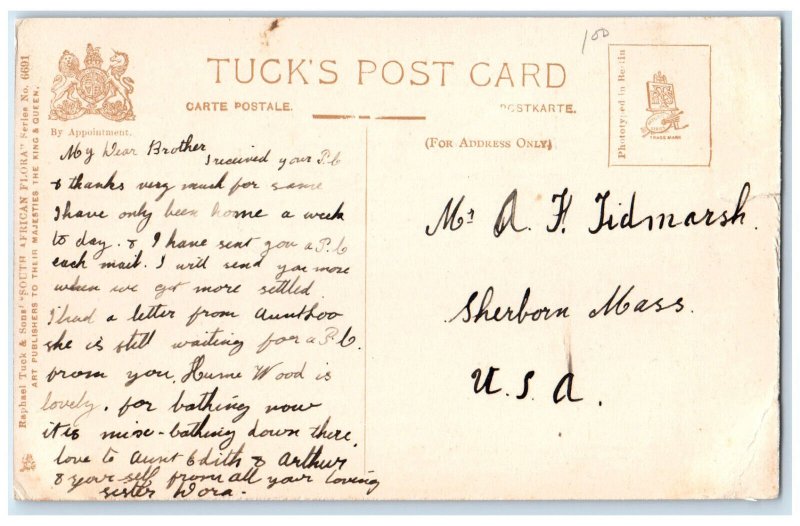 100
TUCK'S POST CARD
CARTE POSTALE.
POSTKARTE.
By Appointment.
(FOR ADDRESS ONLY)
Phototyped in Berlin
TRADE MARK
Raphael Tuck & Sons' "SOUTH AFRICAN FLORA" Series No. 6691
ART PUBLISHERS TO THEIR MAJESTIES THE KING & QUEEN.
My Dear Brother
I received your P.C
& thanks very much for same
I have only been home a week
to day. & I have sent you a P.C
each mail. I will send you more
when we get more settled.
I had a letter from Aunt Loo
she is still waiting for a P.C.
from you. Hume Wood is
lovely. for bathing now
it is mixe-bathing down there.
love to Aunt Edith & Arthur
& your self from all your loving
sister Dora.
Mr A. F. Tidmarsh.
Sherborn Mass.
U.S.A.